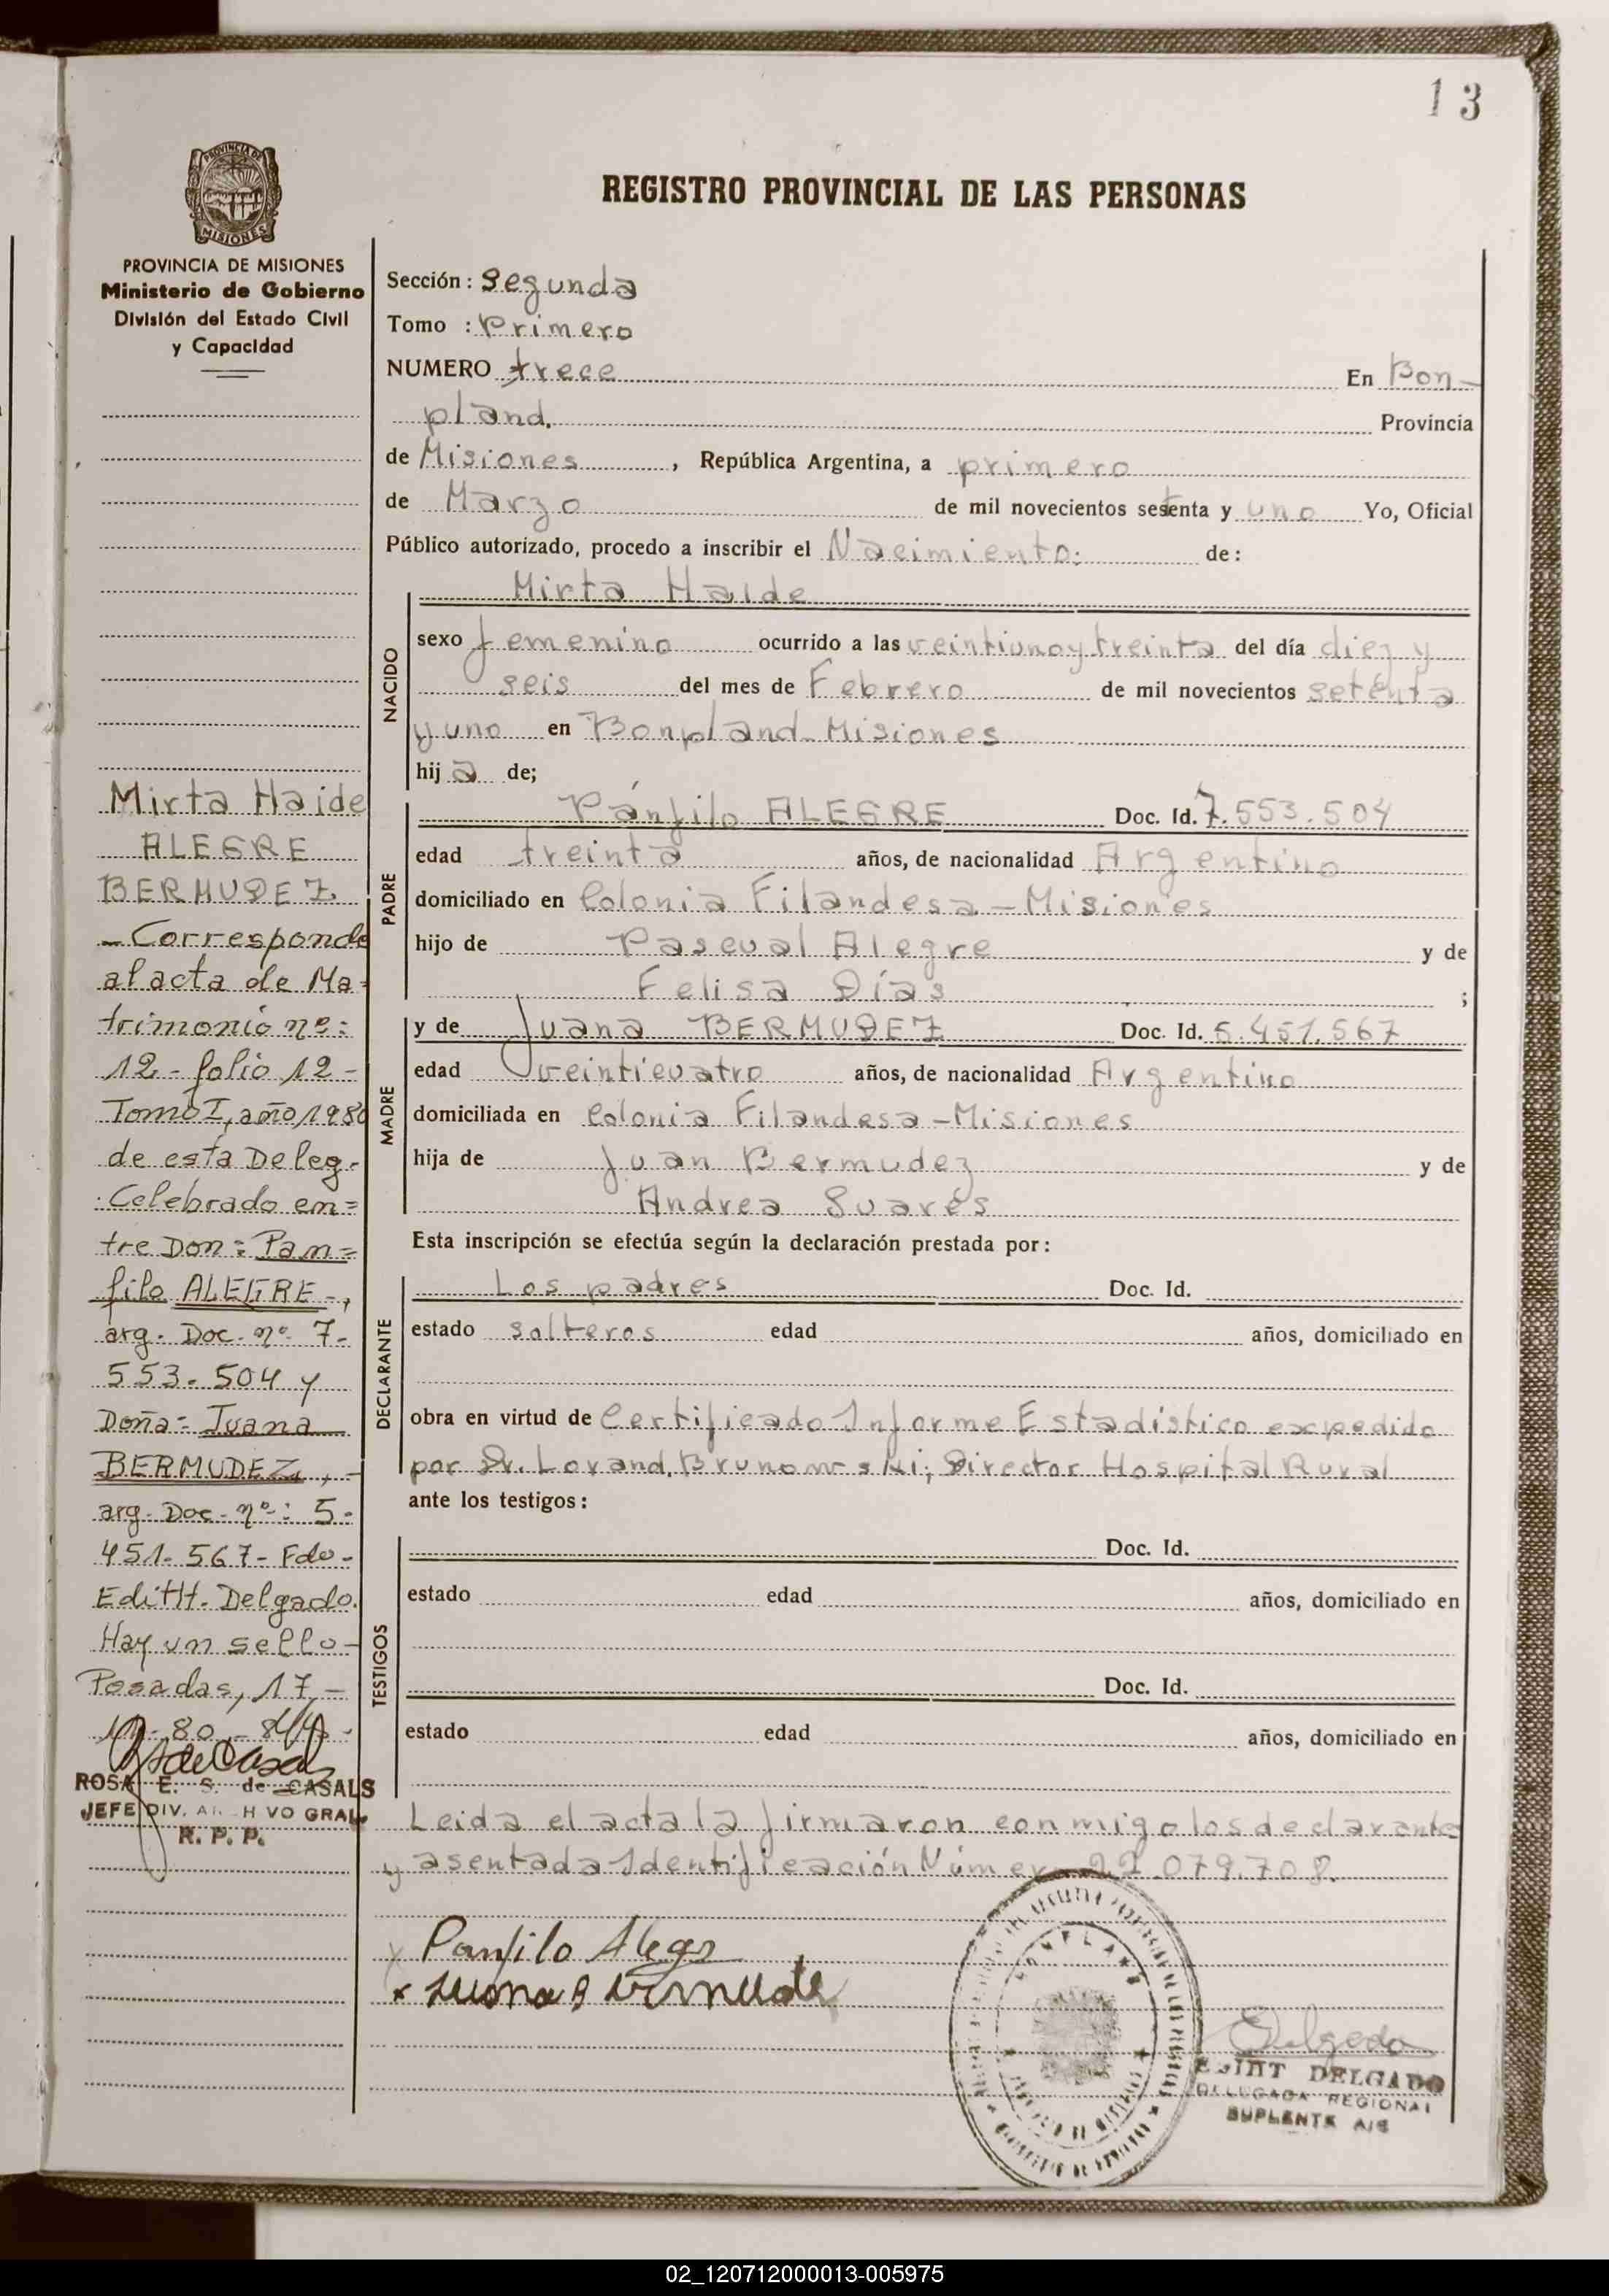 13
PROVINCIA DE
MISIONES
REGISTRO PROVINCIAL DE LAS PERSONAS
PROVINCIA DE MISIONES
Ministerio de Gobierno
División del Estado Civil
y Capacidad
Sección: Segunda
Tomo : Primero
NUMERO trece En Bon-
pland. Provincia
de Misiones, República Argentina, a primero
de Marzo de mil novecientos setenta y uno Yo, Oficial
Público autorizado, procedo a inscribir el Nacimiento: de:
Mirta Haide
NACIDO
sexo femenino ocurrido a las veintiuno y treinta del día diez y
seis del mes de Febrero de mil novecientos setenta
y uno en Bonpland-Misiones
hija de;
PADRE
Pánfilo ALEGRE Doc. Id. 7.553.504
edad treinta años, de nacionalidad Argentino
domiciliado en Colonia Filandesa-Misiones
hijo de Pascual Alegre y de
Felisa Días ;
MADRE
y de Juana BERMUDEZ Doc. Id. 5.451.567
edad veinticuatro años, de nacionalidad Argentino
domiciliada en Colonia Filandesa-Misiones
hija de Juan Bermudez y de
Andrea Suarés
Esta inscripción se efectúa según la declaración prestada por:
DECLARANTE
Los padres Doc. Id.
estado solteros edad años, domiciliado en
obra en virtud de Certificado Informe Estadístico expedido
por Dr. Lorand. Brunowski; Director Hospital Rural
ante los testigos:
TESTIGOS
Doc. Id.
estado edad años, domiciliado en
Doc. Id.
estado edad años, domiciliado en
Leida el acta la firmaron conmigo los declarantes
y asentada Identificación Número 22.079.708.
Panfilo Alegr
x Juana B
Delgado
DELGADO
DELEGADA REGIONAL
SUPLENTE A/C
BONPLAND
Mirta Haide
ALEGRE
BERMUDEZ
-Corresponde
al acta de Ma=
trimonio nº:
12-folio 12-
Tomo I, año 1980
de esta Deleg-
Celebrado en=
tre Don: Pan=
filo ALEGRE-,
arg. Doc. nº 7-
553-504 y
Doña: Juana
BERMUDEZ, -
arg. Doc. nº: 5-
451-567-Fdo-
Edit H. Delgado.
Hay un sello-
Posadas, 17,-
80
ROSA E. S. de CASALS
JEFE DIV. ARCHIVO GRAL.
R. P. P.
02_120712000013-005975